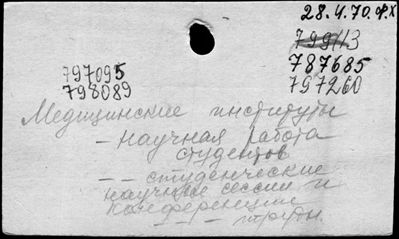 28.4.70.
799113
787685
797260
797095
798089
Медицинские институты
- научная работа
студентов
- - студенческие
научные сессии и
конференции
- - - труды.